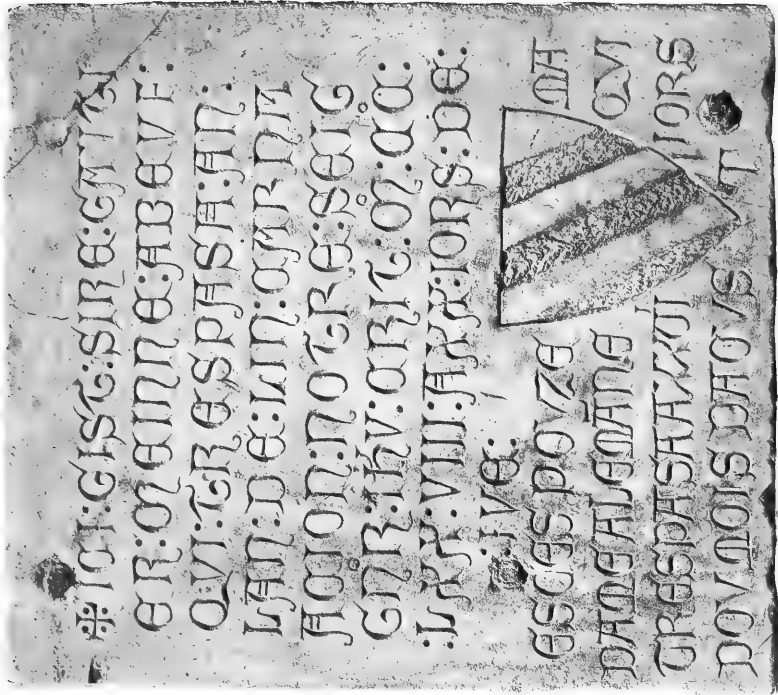 ✠ ICI:GIST:SIRE:GAVTI
ER:MEINNE:ABEVF:
QVI:TRESPASA:AN:
LAN:DE:LIN:CARNA
ACION:NOTRE:SEIG
GNR:IHV:CRIT:M:CC:
:LXX:VIII:AXX:IORS:DE:
:IVE:
ESCES POVZE MA
DAME ALEMANE QVI
TRESPASA A XXII IORS
DOV MOIS